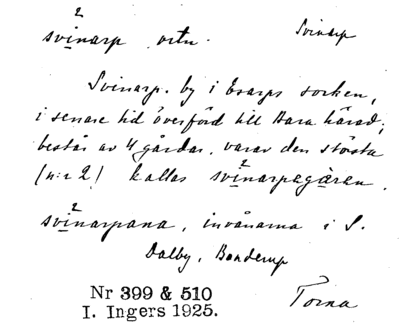 svinarp ortn. Svinarp
Svinarp. by i Esarps socken,
i senare tid överförd till Bara härad;
består av 4 gårdar, varav den största
(n:r 2) kallas svinarpagåran.
svinarpana, invånarna i S.
Dalby, Bonderup
Nr 399 & 510
I. Ingers 1925.
Torna